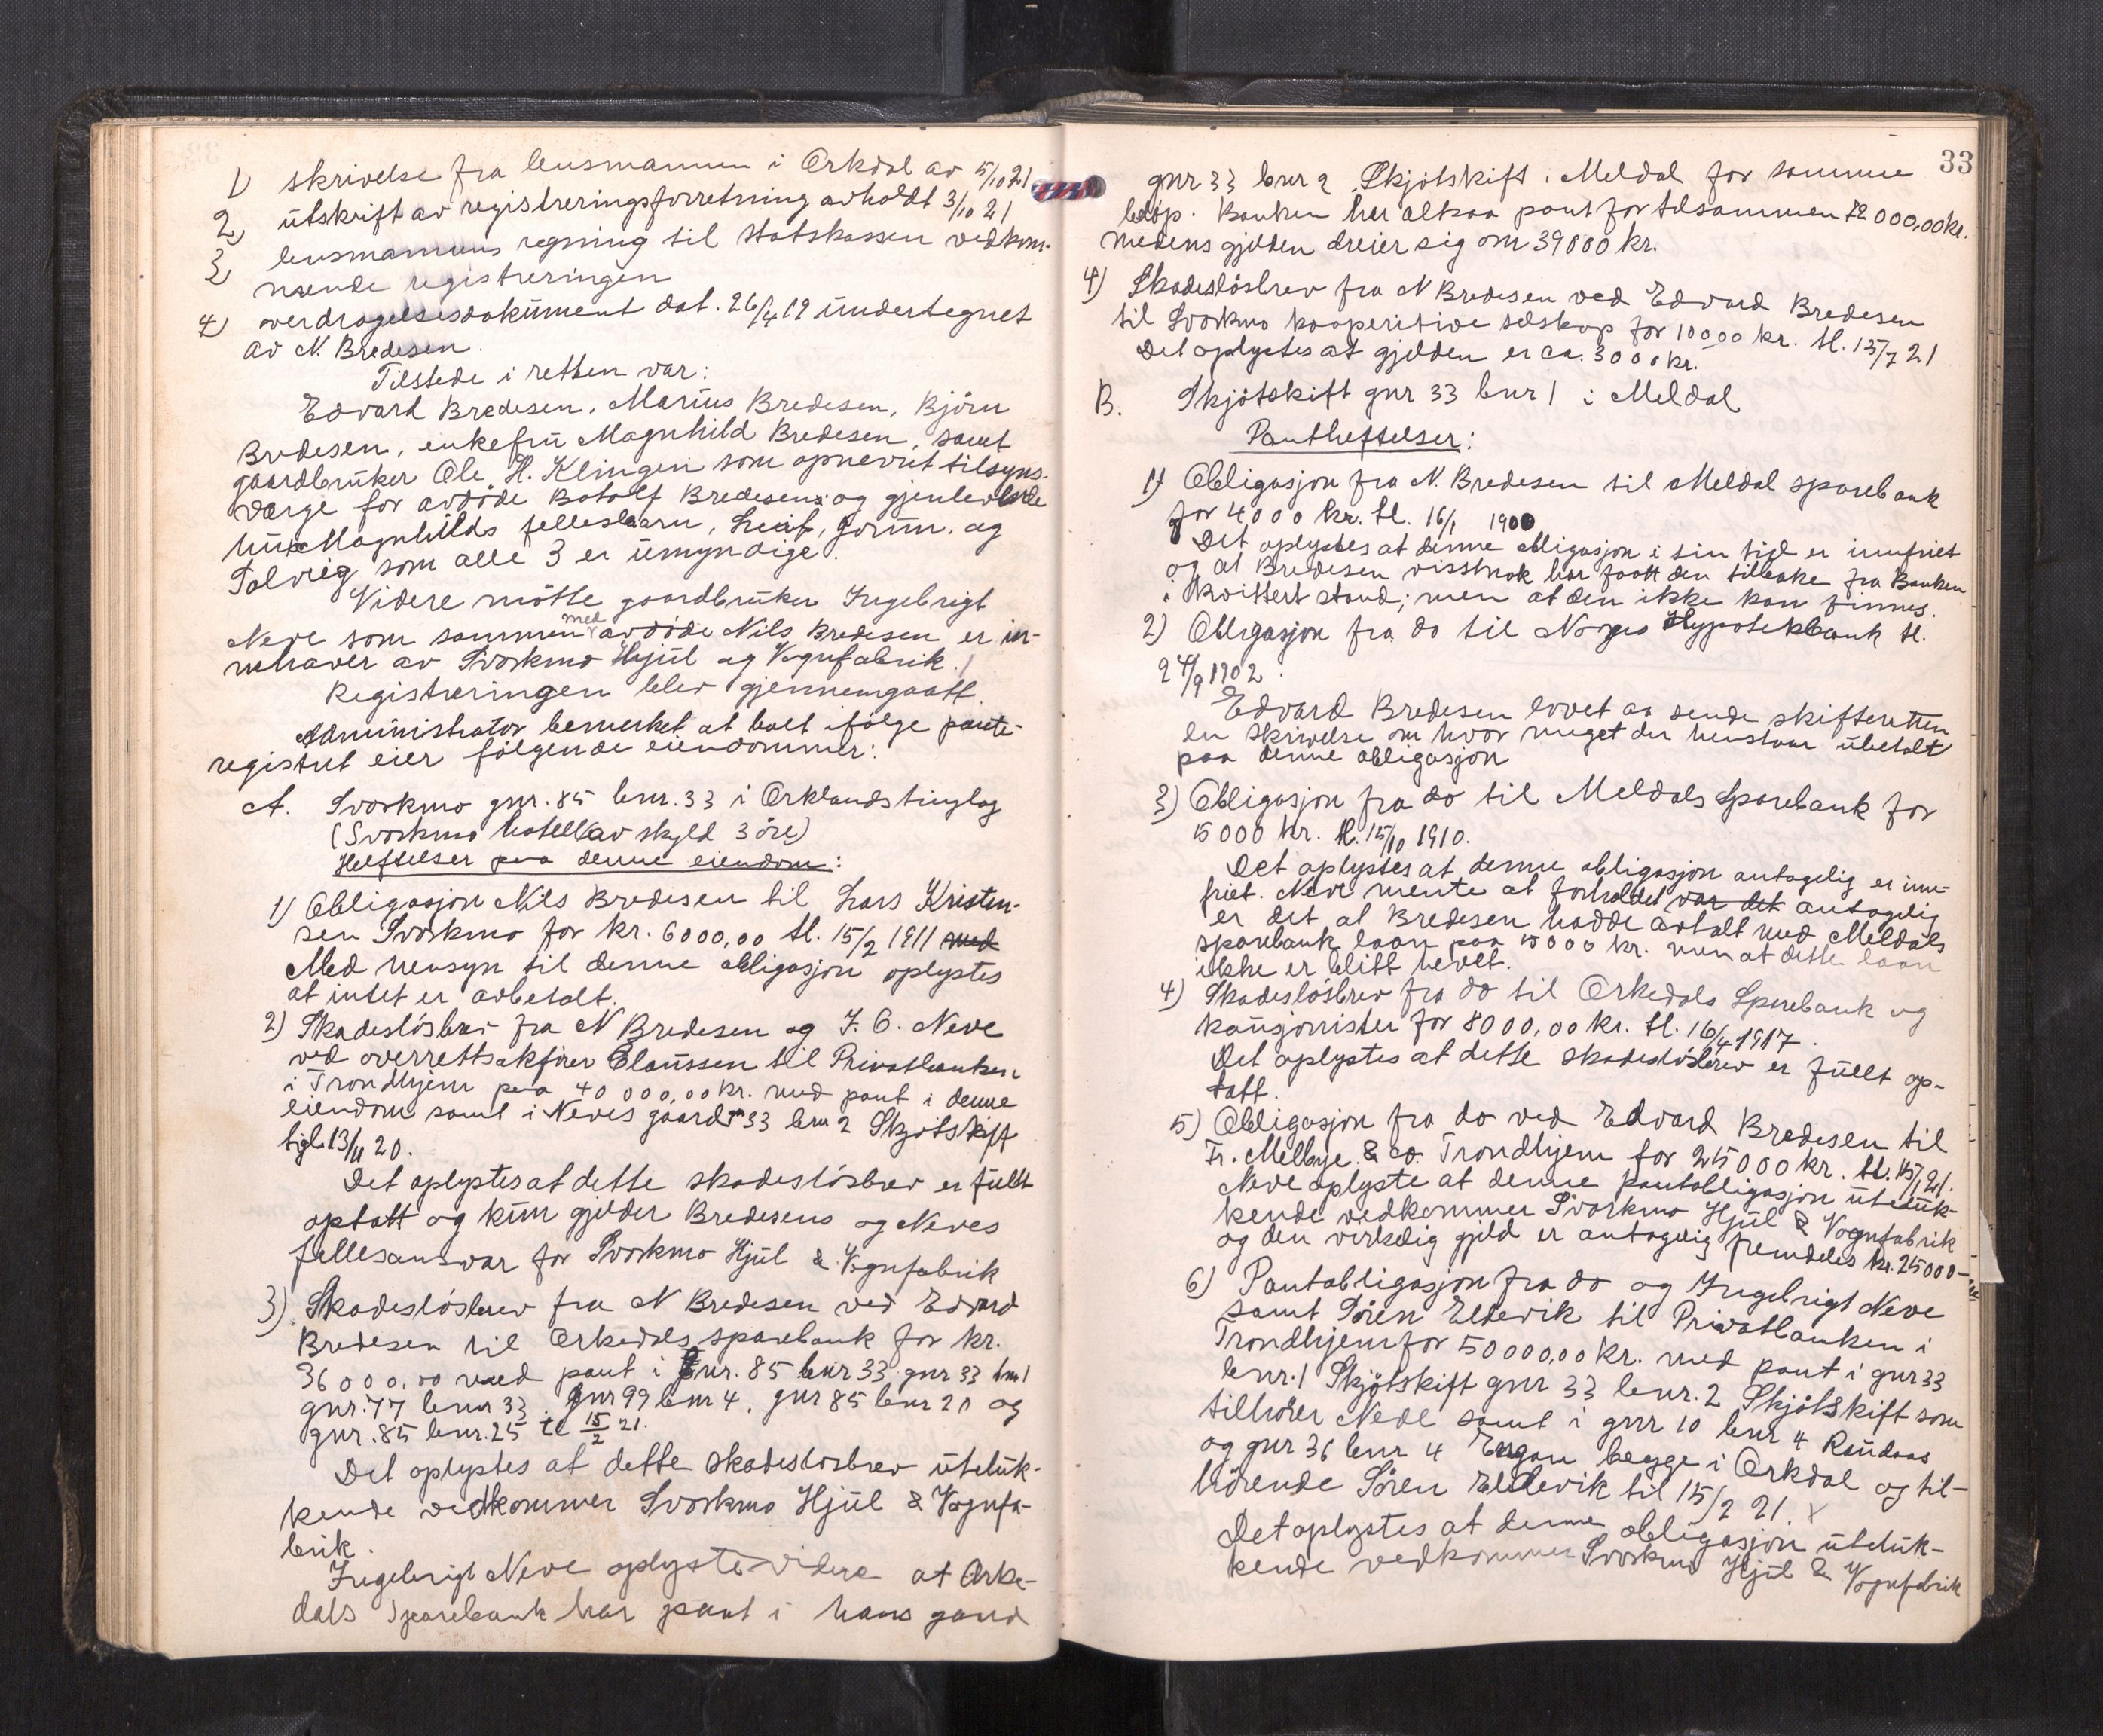 1) skrivelse fra lensmannen i Orkdal av 5/10 21
2) utskrift av registreringsforretning avholdt 3/10 21
3) lensmannens regning til statskassen vedkom-
mende registreringen
4) overdragelsesdokument dat. 26/4 19 undertegnet
av N. Bredesen.
Tilstede i retten var:
Edvard Bredesen, Marius Bredesen, Björn
Bredesen, enkefru Magnhild Bredesen, samt
gaardbruker Ole H. Klingen som opnevnt tilsyns-
verge for avdöde Botolf Bredesens og gjenlevende
hustru Magnhilds fellesbarn, Gorun, og
Solveig som alle 3 er umyndige.
Videre mötte gaardbruker Ingebrigt
Neve som sammen med avdöde Nils Bredesen er in-
nehaver av Svorkmo Hjul og Vognfabrik.
Registreringen blev gjennemgaatt.
Administrator bemerket at boet ifölge pante-
registret eier fölgende eiendommer:
A. Svorkmo gnr. 85 bnr. 33 i Orklands tinglag
(Svorkmo hotell av skyld 3 öre)
Heftelser paa denne eiendom:
1) Obligasjon Nils Bredesen til Lars Kristen-
sen Svorkmo for kr. 6000,00 tl. 15/2 1911 med
Med hensyn til denne obligasjon oplystes
at intet er avbetalt.
2) Skadeslösbrev fra N Bredesen og I. O. Neve
ved overrettsakförer Claussen til Privatbanken
i Trondhjem paa 40 000,00 kr. med pant i denne
eiendom samt i Neves gaard 33 bnr 2 Skjötskift
tgl. 13/11 20.
Det oplystes at dette skadeslösbrev er fullt
optatt og kun gjelder Bredesens og Neves
fellesansvar for Svorkmo Hjul & Vognfabrik
3) Skadeslösbrev fra N Bredesen ved Edvard
Bredesen til Orkedals sparebank for kr.
36000,00 med pant i gnr. 85 bnr 33 gnr 33 bnr 1
gnr. 77 bnr 33 gnr 99 bnr 4, gnr 85 bnr 20 og
gnr. 85 bnr. 25 tl 15/2 21.
Det oplystes at dette skadeslösbrev uteluk-
kende vedkommer Svorkmo Hjul & Vognfa-
brik.
Ingebrigt Neve oplyste videre at Orke-
dals Sparebank har pant i hans gaard
33
gnr 33 bnr 2 Skjötskift i Meldal for samme
belöp. Banken har altsaa pant for tilsammen 72000,00 kr.
medens gjelden dreier sig om 39000 kr.
4) Skadeslösbrev fra N Bredesen ved Edvard Bredesen
til Svorkmo kooperitive selskap for 10000 kr. tl. 15/7 21
Det oplystes at gjelden er ca. 3000 kr.
B. Skjötskift gnr 33 bnr 1 i Meldal
Pantheftelser:
1) Obligasjon fra N. Bredesen til Meldal sparebank
for 4000 kr. tl. 16/1 1900
Det oplystes at denne obligasjon i sin tid er innfriet
og at Bredesen visstnok har faatt den tilbake fra Banken
i kvittert stand; men at den ikke kan finnes.
2) Obligasjon fra do til Norges Hypotekbank tl.
24/9 1902.
Edvard Bredesen lovet aa sende skifteretten
en skrivelse om hvor meget der henstaar ubetalt
paa denne obligasjon
3) Obligasjon fra do til Meldals Sparebank for
5000 kr. tl. 15/10 1910.
Det oplystes at denne obligasjon antagelig er inn-
friet. Neve mente at forholdet var det antagelig
er det at Bredesen hadde avtalt med Meldals
sparebank laan paa 5000 kr. men at dette laan
ikke er blitt hevet.
4) Skadeslösbrev fra do til Orkedals Sparebank og
kausjonister for 8000,00 kr. tl. 16/4 1917.
Det oplystes at dette skadeslösbrev er fullt op-
tatt.
5) Obligasjon fra do ved Edvard Bredesen til
Fr. Mellbye & co. Trondhjem for 25000 kr. tl.
Neve oplyste at denne pantobligasjon uteluk-
kende vedkommer Svorkmo Hjul & Vognfabrik
og den virkelig gjeld er antagelig fremdeles kr. 25000-
6) Pantobligasjon fra do og Ingebrigt Neve
samt Sören Eldevik til Privatbanken i
Trondhjem for 50000,00 kr. med pant i gnr 33
bnr. 1 Skjötskift gnr 33 bnr. 2 Skjötskift som
tilhörer Neve samt i gnr 10 bnr 4
og gnr 36 bnr 4 Engan begge i Orkdal og til-
hörende Sören Eldevik til 15/2 21.
Det oplystes at denne obligasjon uteluk-
kende vedkommer Svorkmo Hjul & Vognfabrik